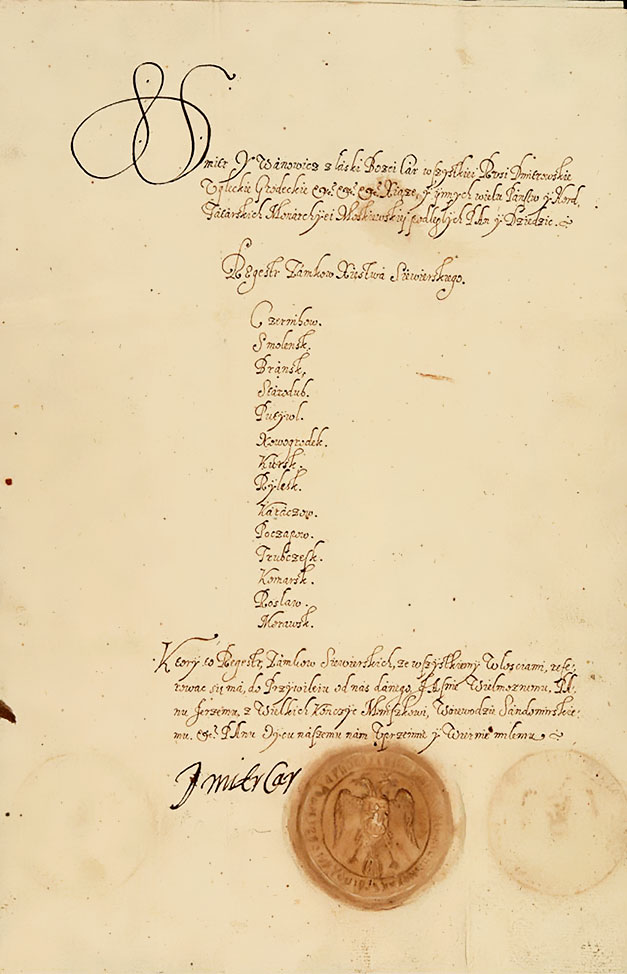 Dmitr Y Wanowicz z łáski Bozei Cár wszystkiei Rusi Dmitrowskie
Vglickie Grodeckie etc. etc. etc. Xiąże, y innych wielu Páństw y Hord
Tátárskich Monárchyei Moskiewskiey podległych Pán y Dziedzic.
Regestr Zámkow Xięstwá Siewierskiego.
Czernihow.
Smolensk.
Bránsk.
Stárodub.
Putywl.
Nowogrodek.
Kursk.
Rylsk.
Karáczow.
Poczapow.
Trubczesk.
Komarsk.
Rosław.
Morawsk.
Ktory to Regestr, Zámkow Siewierskich, ze wszystkiemi Włosciami, refe,,
rowac się má, do Przywileiu od nas dánego, JAsnie Wielmoznemu, Pá,,
nu Jerzemu, z Wielkich Kończyc Mniszkowi, Woiewodzie Sándomirskie,,
mu. etc. Pánu Oycu nászemu nám Vprzeimie y Wiernie miłemu
Dmitr Car